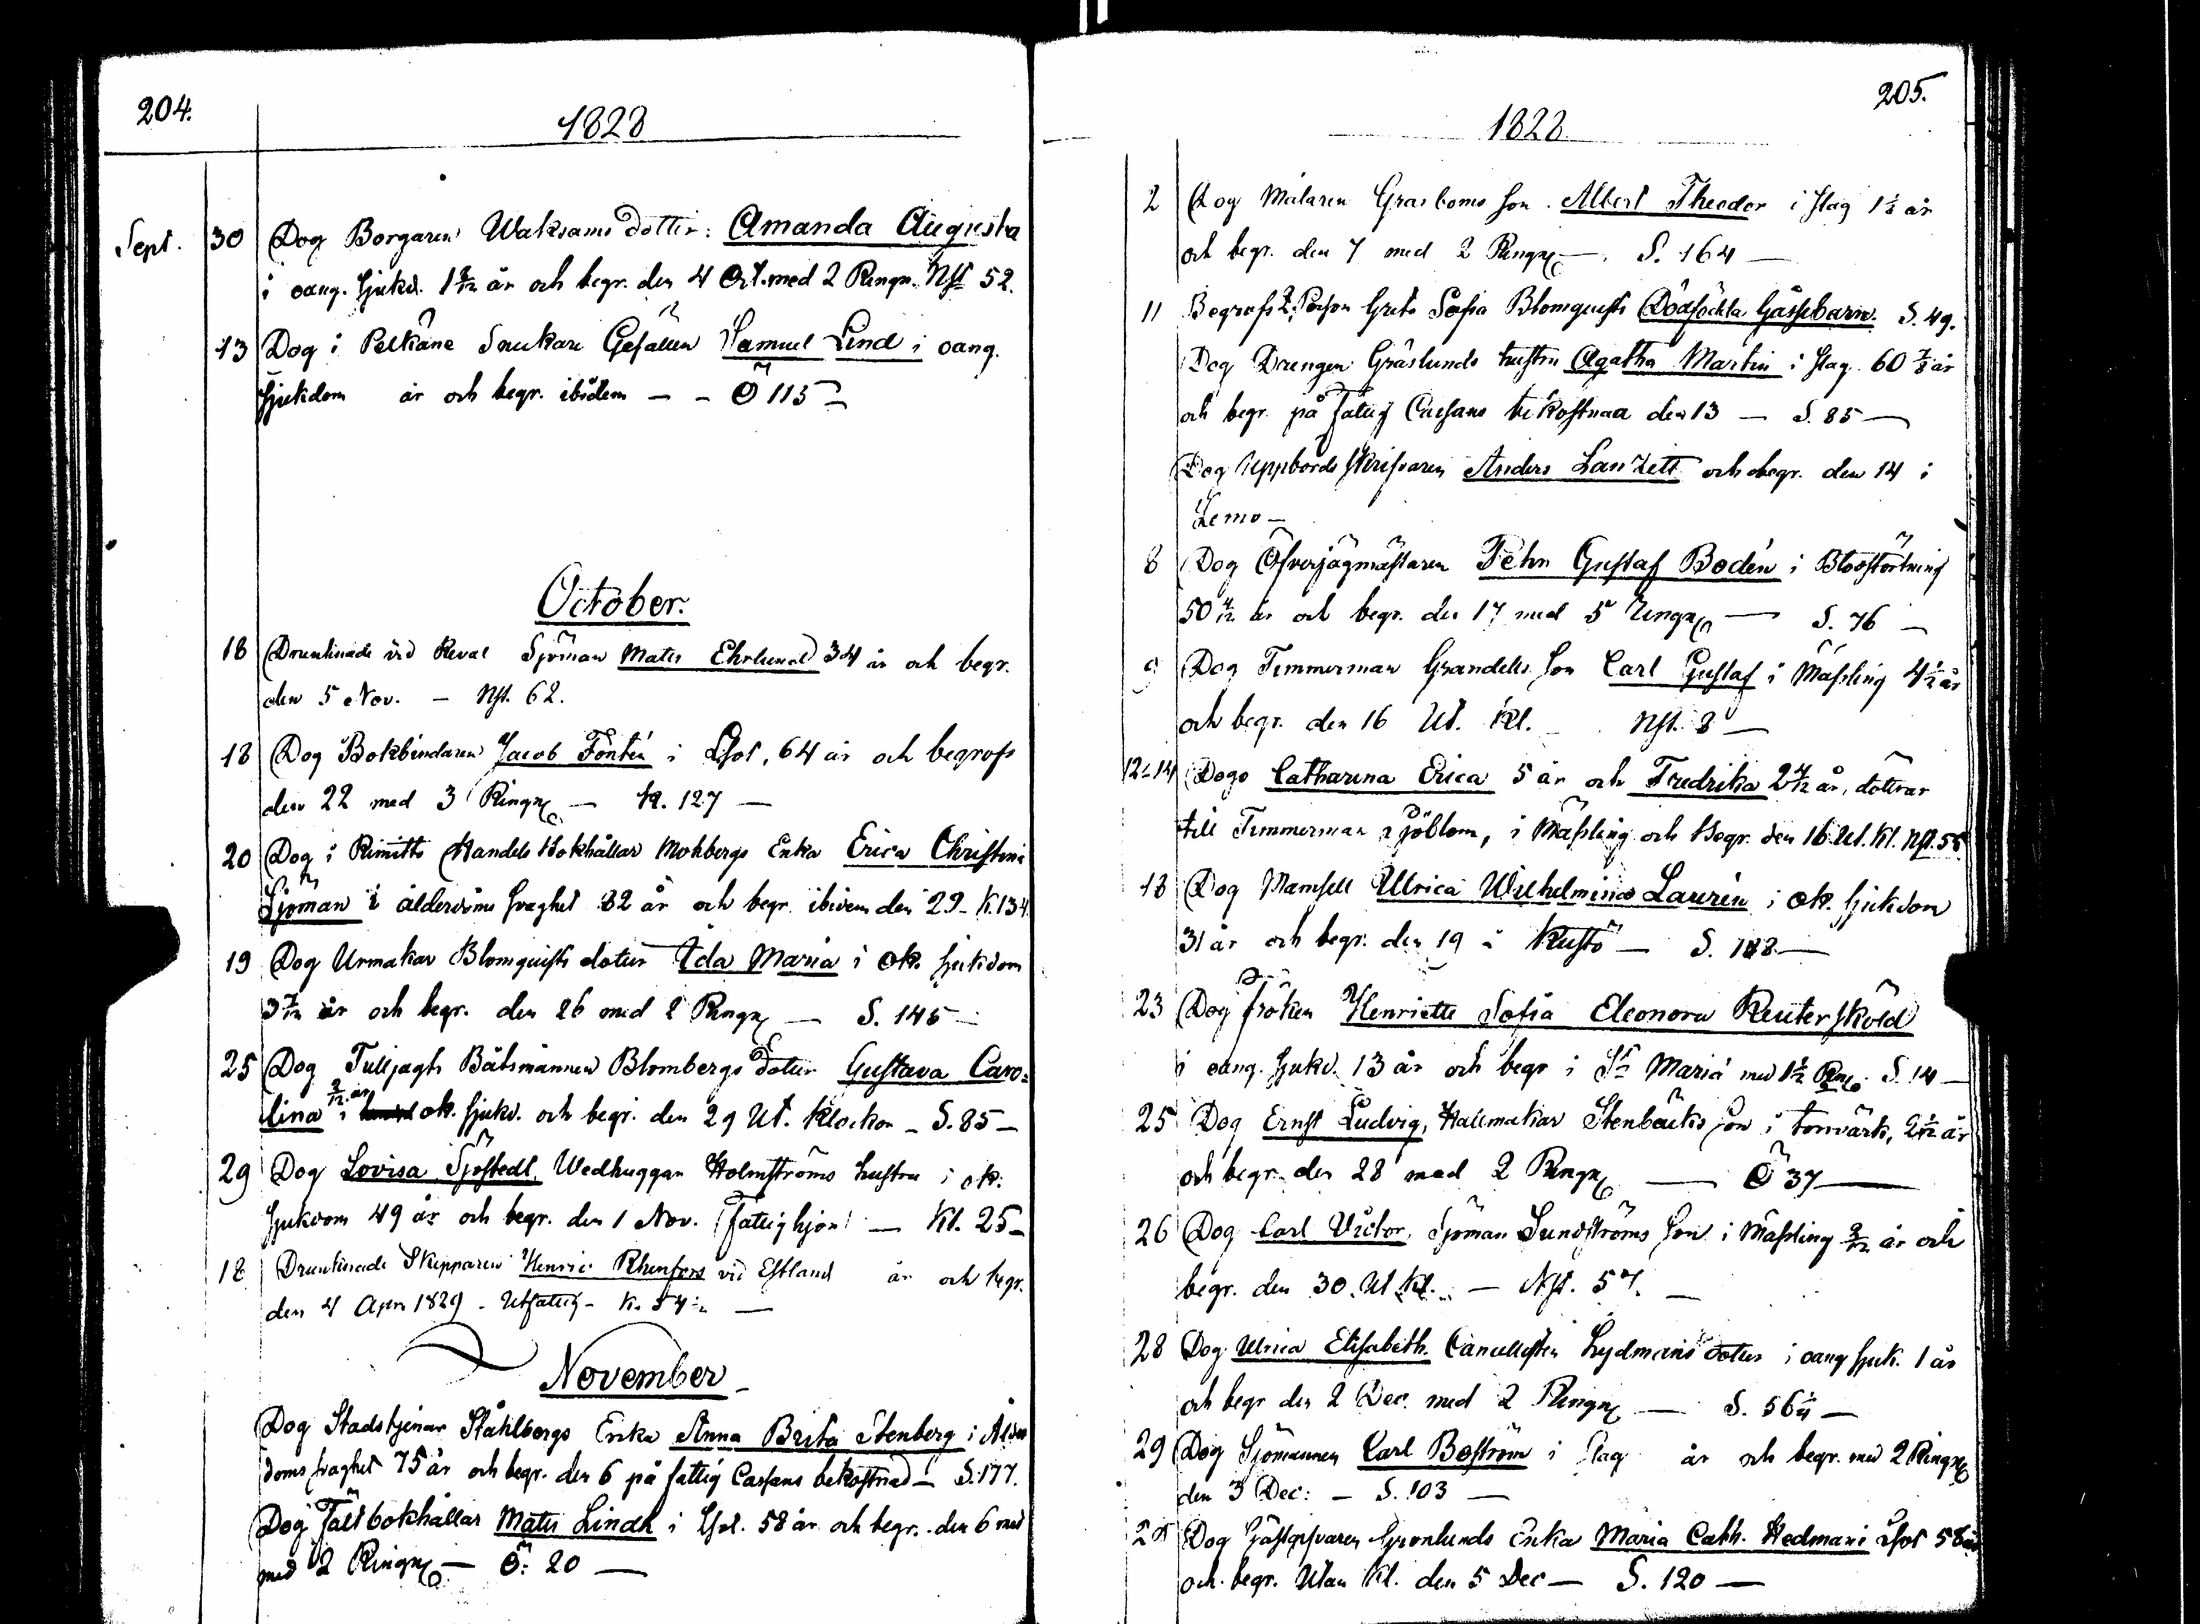 204.
1828
Sept. 30 Dog Borgaren Waksams dotter: Amanda Augusta
i oang. sjukd. 1 8/12 år och begr. den 4 Oct. med 2 Ringn. Nst 52.
13 Dog i Pelkäne Snickare Gesällen Samuel Lind i oang.
sjukdom år och begr. ibidem — - Ö 115 —
October.
18 Drunknade vid Reval Sjöman Mats Ehrlund 34 år och begr.
den 5 Nov. — Nst. 62.
18 Dog Bokbindaren Jacob Fontin i Lsot, 64 år och begrofs
den 22 med 3 Ringn — K. 127 —
20 Dog i Rimitto Handels Bokhållar Mohbergs Enka Erica Christina
Sjöman i ålderdoms svaghet 82 år och begr. ibidem den 29 - K. 134
19 Dog Urmakar Blomquists dotter Ida Maria i ok. sjukdom
3 7/12 år och begr. den 26 med 2 Ringn — S. 145 —
25 Dog Tulljagts Båtsmannen Blombergs dotter Gustava Caro-
lina 2/12 år i ok. sjukd. och begr. den 29 Ut. Klockor — S. 85 —
29 Dog Lovisa Sjöstedt, Wedhuggar Holmströms hustru i ok.
sjukdom 49 år och begr. den 1 Nov. (fattighjon) — Kl. 25 —
18 Drunknade Skepparen Henric Rhenfors vid Estland år och begr.
den 4 Apr. 1829 - Utfattig - K. 54 1/2 —
November
Dog Stadstjenar Ståhlbergs Enka Anna Brita Stenberg i Ålder
doms svaghet 75 år och begr. den 6 på fattig Cassans bekostnad — S. 177.
Dog Fältbokhållar Mats Lindh i Lsot. 58 år och begr. den 6 med
med 2 Ringn — Ö: 20 —
205.
1828
2 Dog Målaren Grasboms son Albert Theodor i slag 1 1/2 år
och begr. den 7 med 2 Ringn — S. 164 —
11 Begrofs Greta Sofia Blomquists Dödfödda Gåssebarn. S. 49.
Dog Drengen Gräslunds hustru Agatha Martin i slag. 60 7/8 år
och begr. på fattig Cassans bekostnad den 13 — S. 85 —
Dog Uppbördsskrifvaren Anders Lanzett och begr. den 14 i
Lemo —
8 Dog Öfverjägmästaren Pehr Gustaf Bodén i Blodstörtning
50 4/12 år och begr. den 17 med 5 Ringn — S. 76 —
9 Dog Timmerman Grandells son Carl Gustaf i Mässling 4 1/2 år
och begr. den 16 Ut. Kl. — Nst. 8 —
12-14 Dogo Catharina Erica 5 år och Fredrika 2 4/12 år, döttrar
till Timmerman Sjöblom, i Mässling och Begr. den 16 Ut. Kl. Nst. 55
13 Dog Mamsell Ulrica Wilhelmina Laurin i ok. sjukdom
31 år och begr. den 19 i Kustö — S. 188 —
23 Dog fröken Henriette Sofia Eleonora Reuterskiöld
i oang. sjukd. 13 år och begr i St Maria med 1 1/2 Rn. S. 14 —
25 Dog Ernst Ludvig, Hattmakar Stenbäcks son i torrvärk, 2 1/12 år
och begr. den 28 med 2 Ringn — Ö 37 —
26 Dog Carl Victor, Sjöman Sundströms son i Mässling 9/12 år och
begr. den 30. Ut Kl. — Nst. 57. —
28 Dog Ulrica Elisabeth. Cancellisten Lydmans dotter i oang sjuk. 1 år
och begr den 2 Dec. med 2 Ringn — S. 56 1/4 —
29 Dog Sjömannen Carl Boström i slag år och begr. med 2 Ringn
den 3 Dec: — S. 103 —
Dog Gästgifvaren Grönlunds Enka Maria Cath. Hedman i Lsot 58 år
och begr. Utan Kl. den 5 Dec — S. 120 —